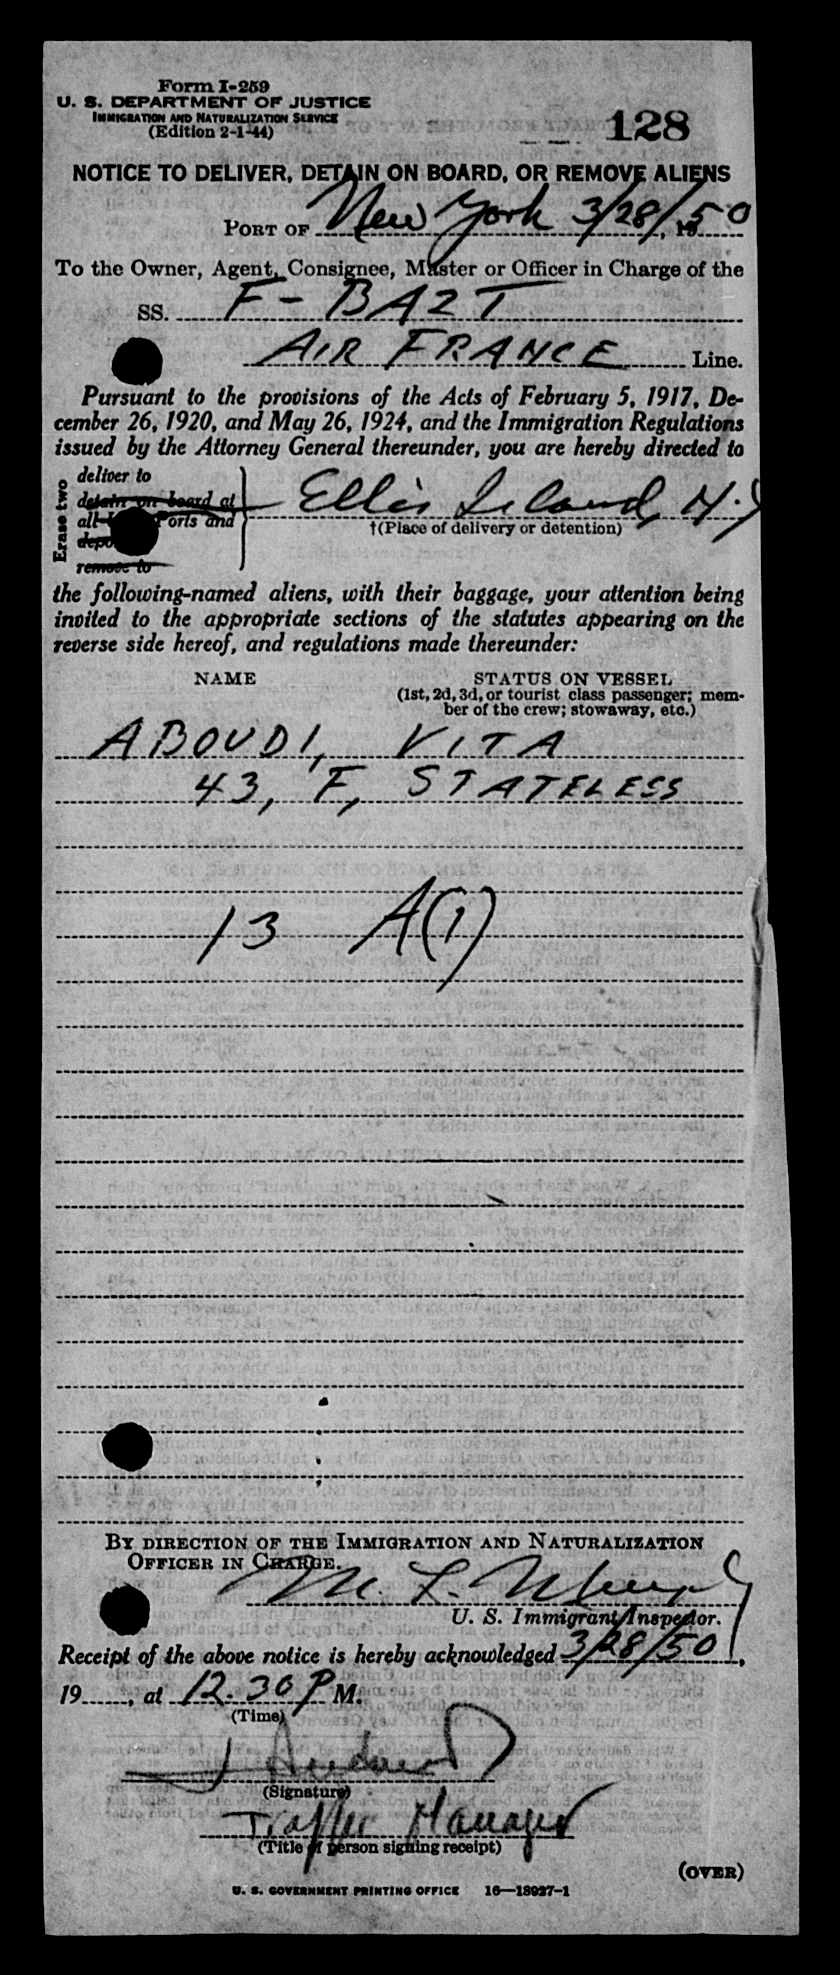 Form I-259
U. S. DEPARTMENT OF JUSTICE
IMMIGRATION AND NATURALIZATION SERVICE
(Edition 2-1-44)
128
NOTICE TO DELIVER, DETAIN ON BOARD, OR REMOVE ALIENS
PORT OF New York 3/28/, 1950
To the Owner, Agent, Consignee, Master or Officer in Charge of the
SS. F-BAZT
AIR FRANCE Line.
Pursuant to the provisions of the Acts of February 5, 1917, De-
cember 26, 1920, and May 26, 1924, and the Immigration Regulations
issued by the Attorney General thereunder, you are hereby directed to
Erase two
deliver to
detain on board at
all Ports and
remove to
Ellis Island, N.Y
†(Place of delivery or detention)
the following-named aliens, with their baggage, your attention being
invited to the appropriate sections of the statutes appearing on the
reverse side hereof, and regulations made thereunder:
NAME
STATUS ON VESSEL
(1st, 2d, 3d, or tourist class passenger; mem-
ber of the crew; stowaway, etc.)
ABOUDI, VITA
43, F, STATELESS
13 A(1)
BY DIRECTION OF THE IMMIGRATION AND NATURALIZATION
OFFICER IN CHARGE.
M. L.
U. S. Immigrant Inspector.
Receipt of the above notice is hereby acknowledged 3/28/50,
19......, at 12.30 P M.
(Time)
(Signature)
Traffic Manager
(Title of person signing receipt)
(OVER)
U. S. GOVERNMENT PRINTING OFFICE 16—18927-1